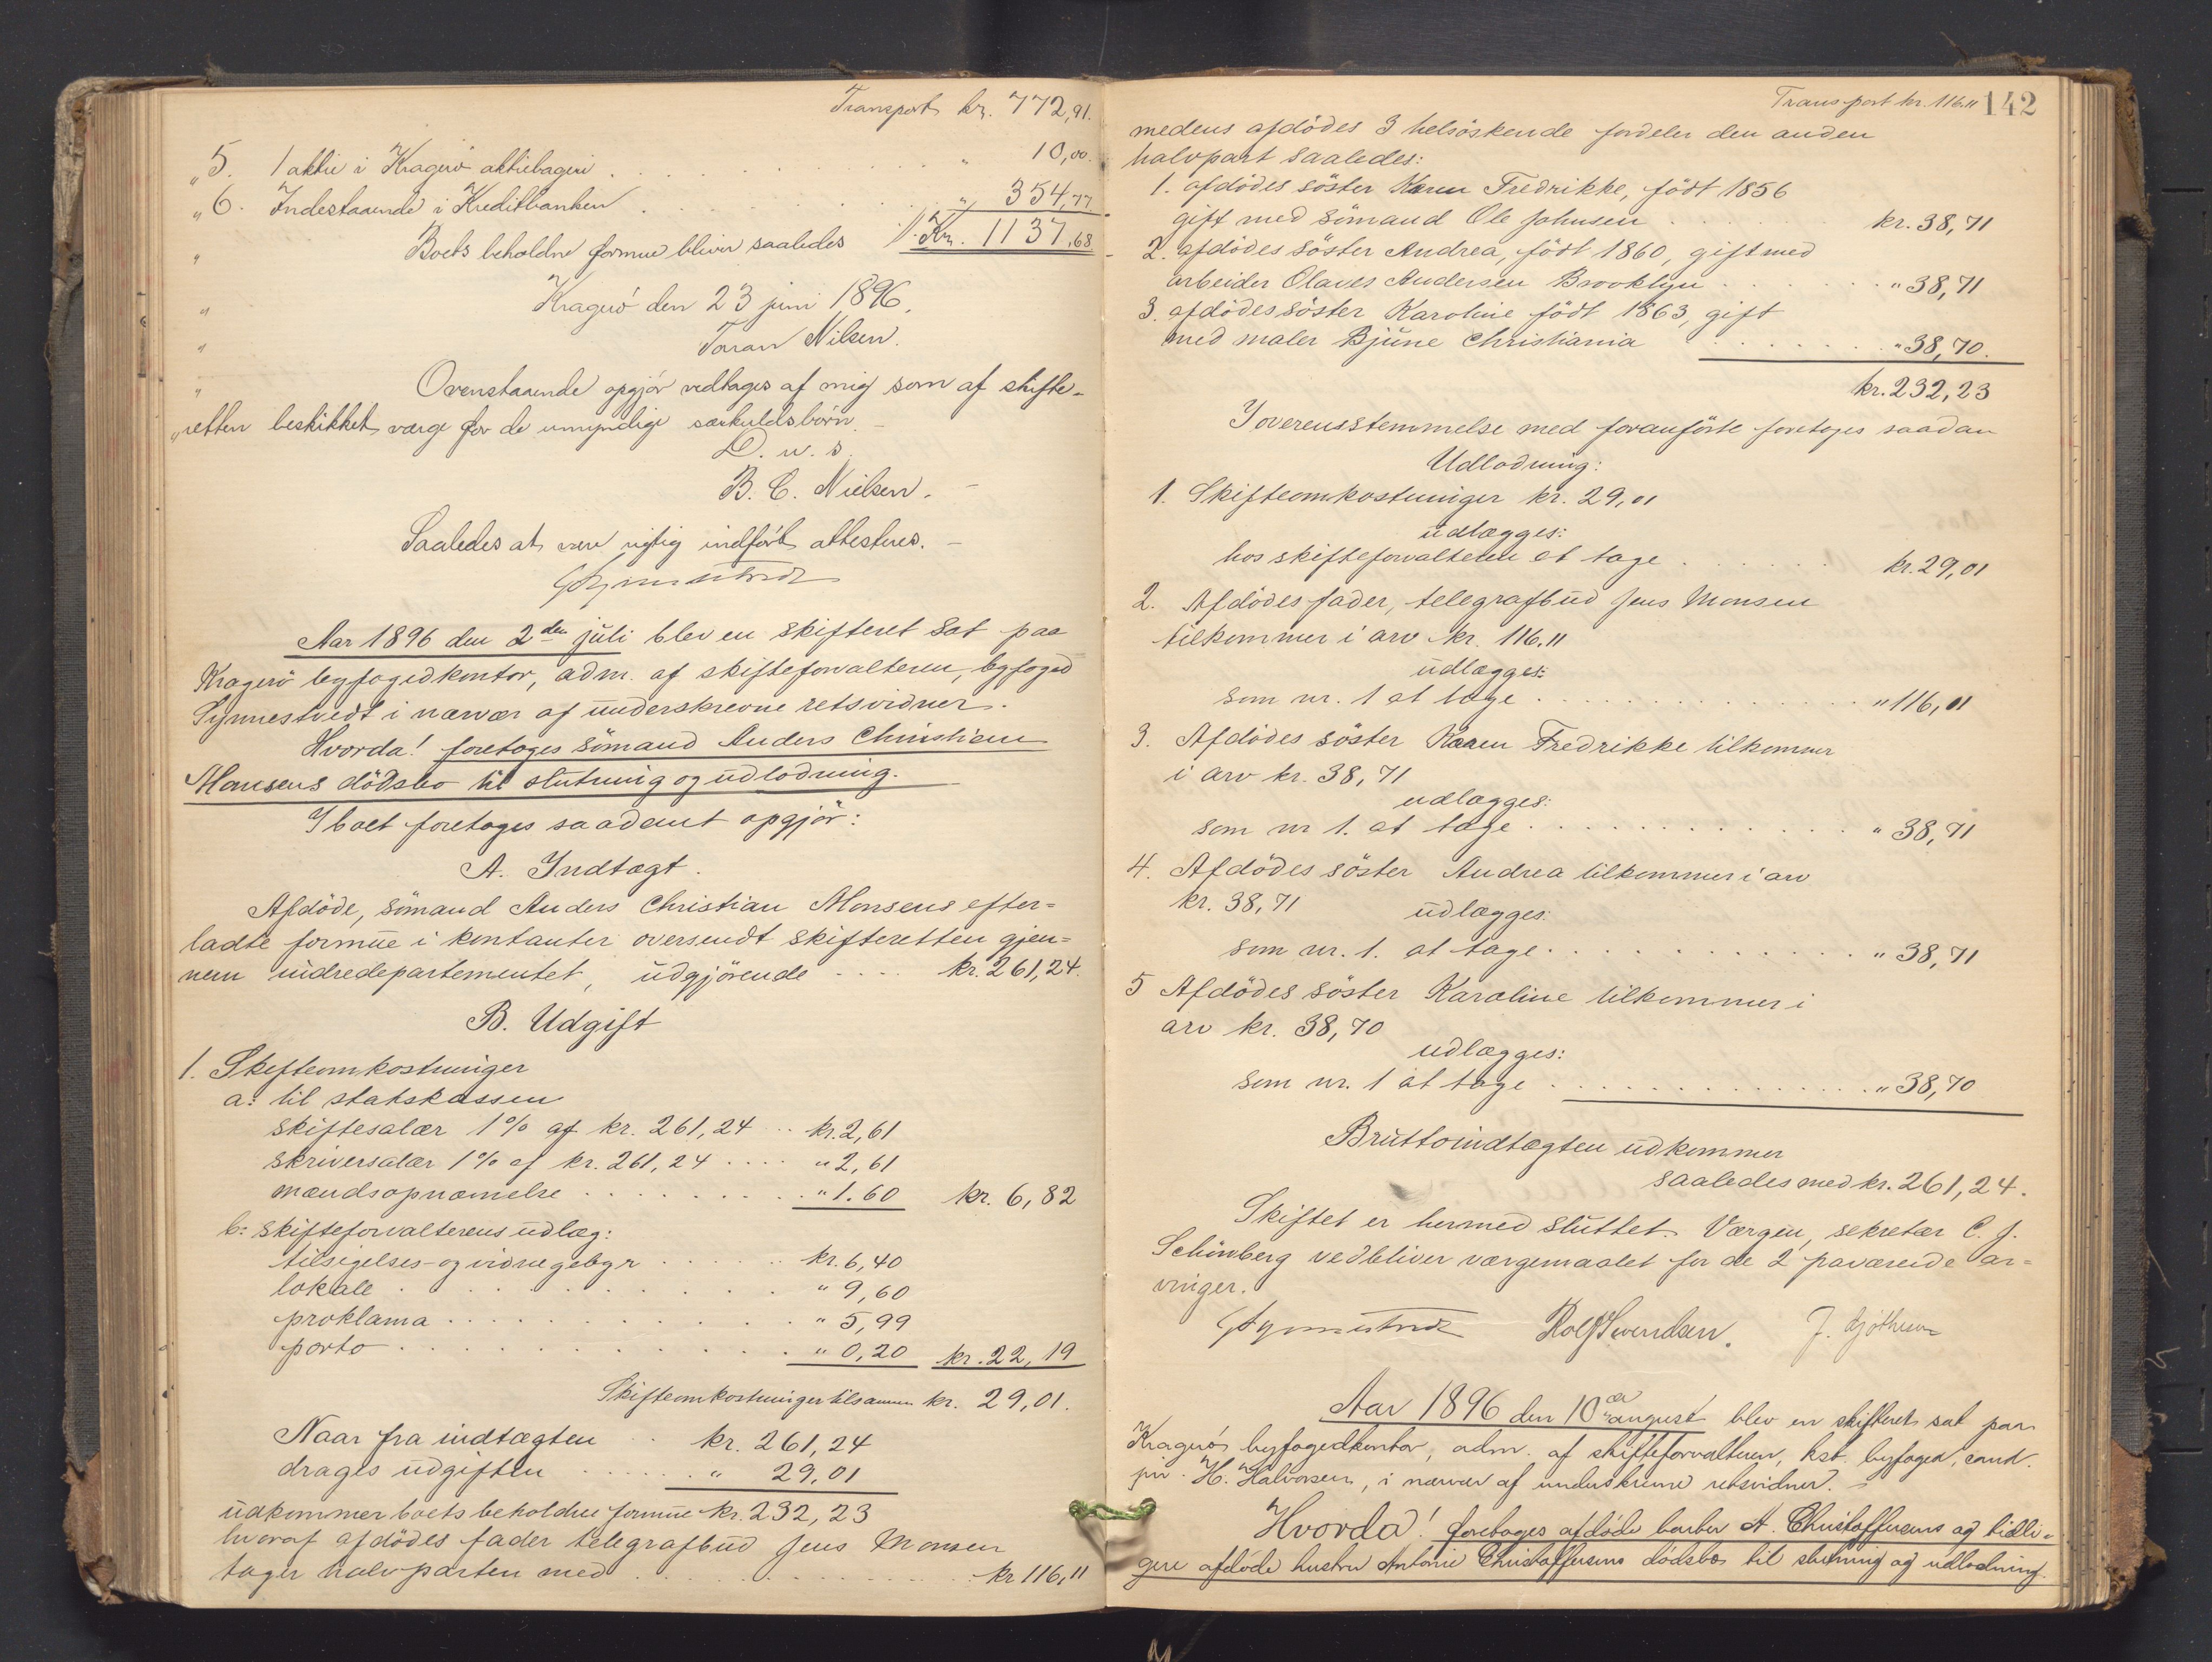 Transport kr. 772,91.
„ 5. 1 aktie i Kragerö aktiebageri . . . . . „ 10,00.
„ 6. Indestaaende i Kreditbanken . . . . . „ 354,77
„ Boets beholdne formue bliver saaledes Kr. 1137,68
„ Kragerö den 23 juni 1896.
„ Taran Nilsen.
„ Ovenstaaende opgjör vedtages af mig som af skifte-
„ retten beskikket værge for de umyndige særkuldsbörn. -
D. u. s.
B. C. Nielsen. -
Saaledes at være rigtig indfört attesteres. -
Synnestvedt
Aar 1896 den 2den juli blev en skifteret sat paa
Kragerö byfogedkontor, adm. af skifteforvalteren, byfoged
Synnestvedt i nærvær af underskrevne retsvidner.
Hvorda! foretoges sömand Anders Christian
Monsens dödsbo til slutning og udlodning.
I boet foretoges saadant opgjör:
A. Indtægt.
Afdöde, sömand Anders Christian Monsens efter=
ladte formue i kontanter oversendt skifteretten gjen=
nem indredepartementet, udgjörende . . . kr. 261,24.
B. Udgift
1. Skifteomkostninger
a: til statskassen
skiftesalær 1% af kr. 261,24 . . kr. 2,61
skriversalær 1% af kr. 261,24 . . . . „ 2,61
mandsopnævnelse . . . . . . . „ 1.60 kr. 6,82
b: skifteforvalterens udlæg:
tilsigelses- og vidnegebyr . . . . . kr. 6,40
lokale . . . . . . . . „ 9,60
proklama . . . . . . . . „ 5,99
porto . . . . . . . . „ 0,20 kr. 22,19
Skifteomkostninger tilsammen kr. 29,01.
Naar fra indtægten . . kr. 261,24
drages udgiften . . . . . „ 29,01
udkommer boets beholdne formue kr. 232,23
hvoraf afdödes fader telegrafbud Jens Monsen
tager halvparten med . . . . . . . kr 116,11
Transport kr. 116.11
142
medens afdödes 3 helsöskende fordeler den anden
halvpart saaledes:
1. afdödes söster Karen Fredrikke, födt 1856
gift med sömand Ole Johnsen . . . . kr. 38,71
2. afdödes söster Andrea, födt 1860, gift med
arbeider Olaves Andersen Brooklyn . . . . . „ 38,71
3. afdödes söster Karoline födt 1863, gift
med maler Bjune Christiania . . . . . „ 38,70.
kr. 232,23
I overensstemmelse med foranförte foretoges saadan
Udlodning:
1. Skifteomkostninger kr. 29,01
udlægges:
hos skifteforvalteren at tage . . . . . kr. 29,01
2. Afdödes fader, telegrafbud Jens Monsen
tilkommer i arv kr. 116.11
udlægges:
som nr. 1 at tage . . . . . . . . „ 116,11
3. Afdödes söster Karen Fredrikke tilkommer
i arv kr. 38,71
udlægges:
som nr 1. at tage . . . . . . . . „ 38,71
4. Afdödes söster Andrea tilkommer i arv
kr. 38,71 udlægges:
som nr. 1. at tage . . . . . . . . „ 38,71
5 Afdödes söster Karoline tilkommer i
arv kr. 38,70
udlægges:
som nr. 1 at tage . . . . . . . . „ 38,70
Bruttoindtægten udkommer
saaledes med kr. 261,24.
Skiftet er hermed sluttet. Værgen, sekretær C. J.
Schönberg vedbliver værgemaalet for de 2 fraværende ar=
vinger.
Synnestvedt Rolf Svendsen.
Aar 1896 den 10de august blev en skifteret sat paa
Kragerö byfogedkontor, adm. af skifteforvalteren, kst. byfoged, cand.
jur. H. Halvorsen, i nærvær af underskrevne retsvidner. -
Hvorda! foretoges afdöde barber A. Christoffersens og tidli-
gere afdöde hustru Antonie Christoffersens dödsbo til slutning og udlodning.